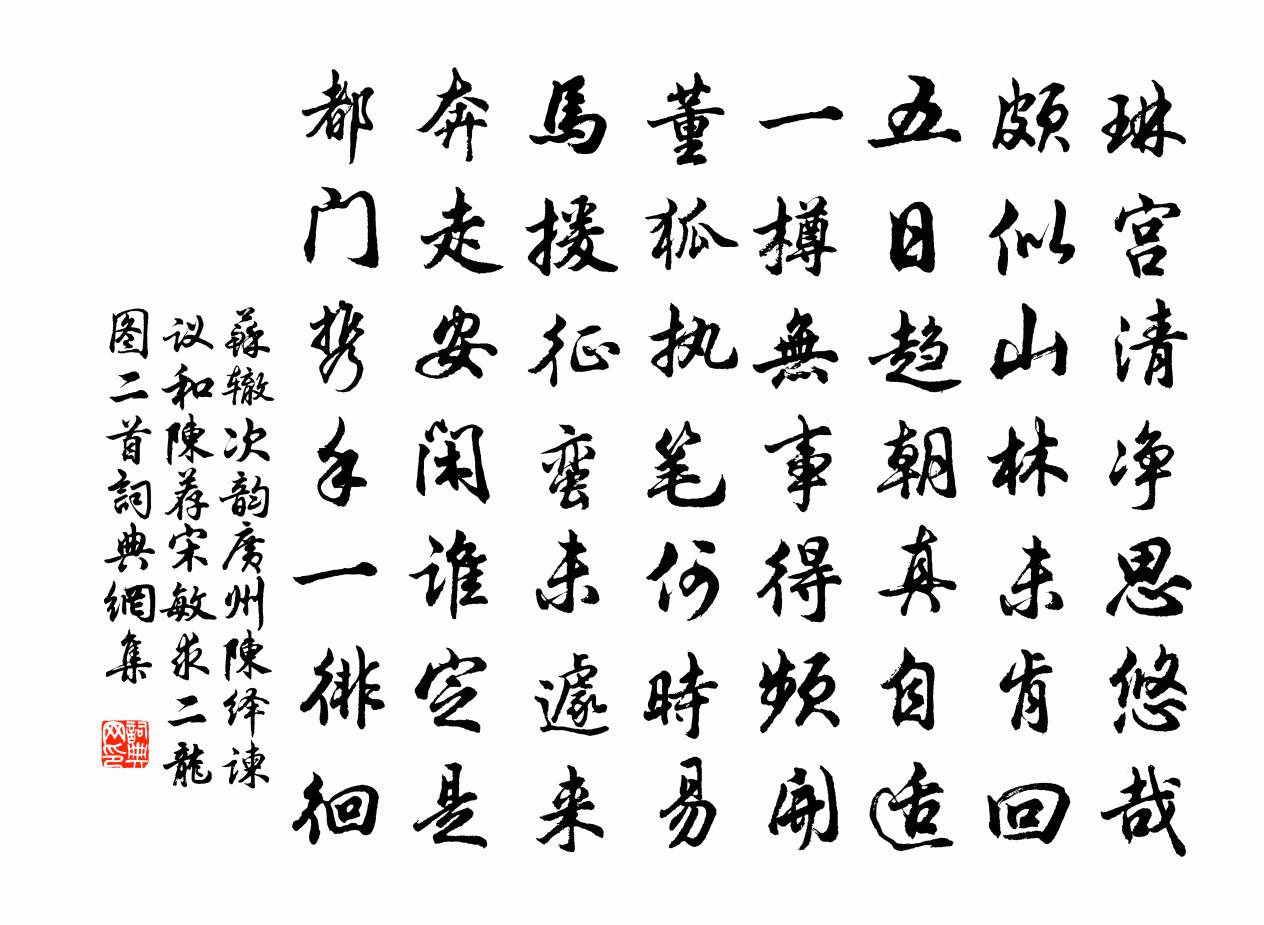 琳宫清净思悠哉
颇似山林未肯回
五日趋朝真自适
一樽無事得频開
董狐执笔何時易
馬援征蛮未遽来
奔走安闲谁定是
都门携手一徘徊
蘇辙次韵廣州陳绎谏
议和陳荐宋敏求二龍
图二首詞典網集
詞典网印